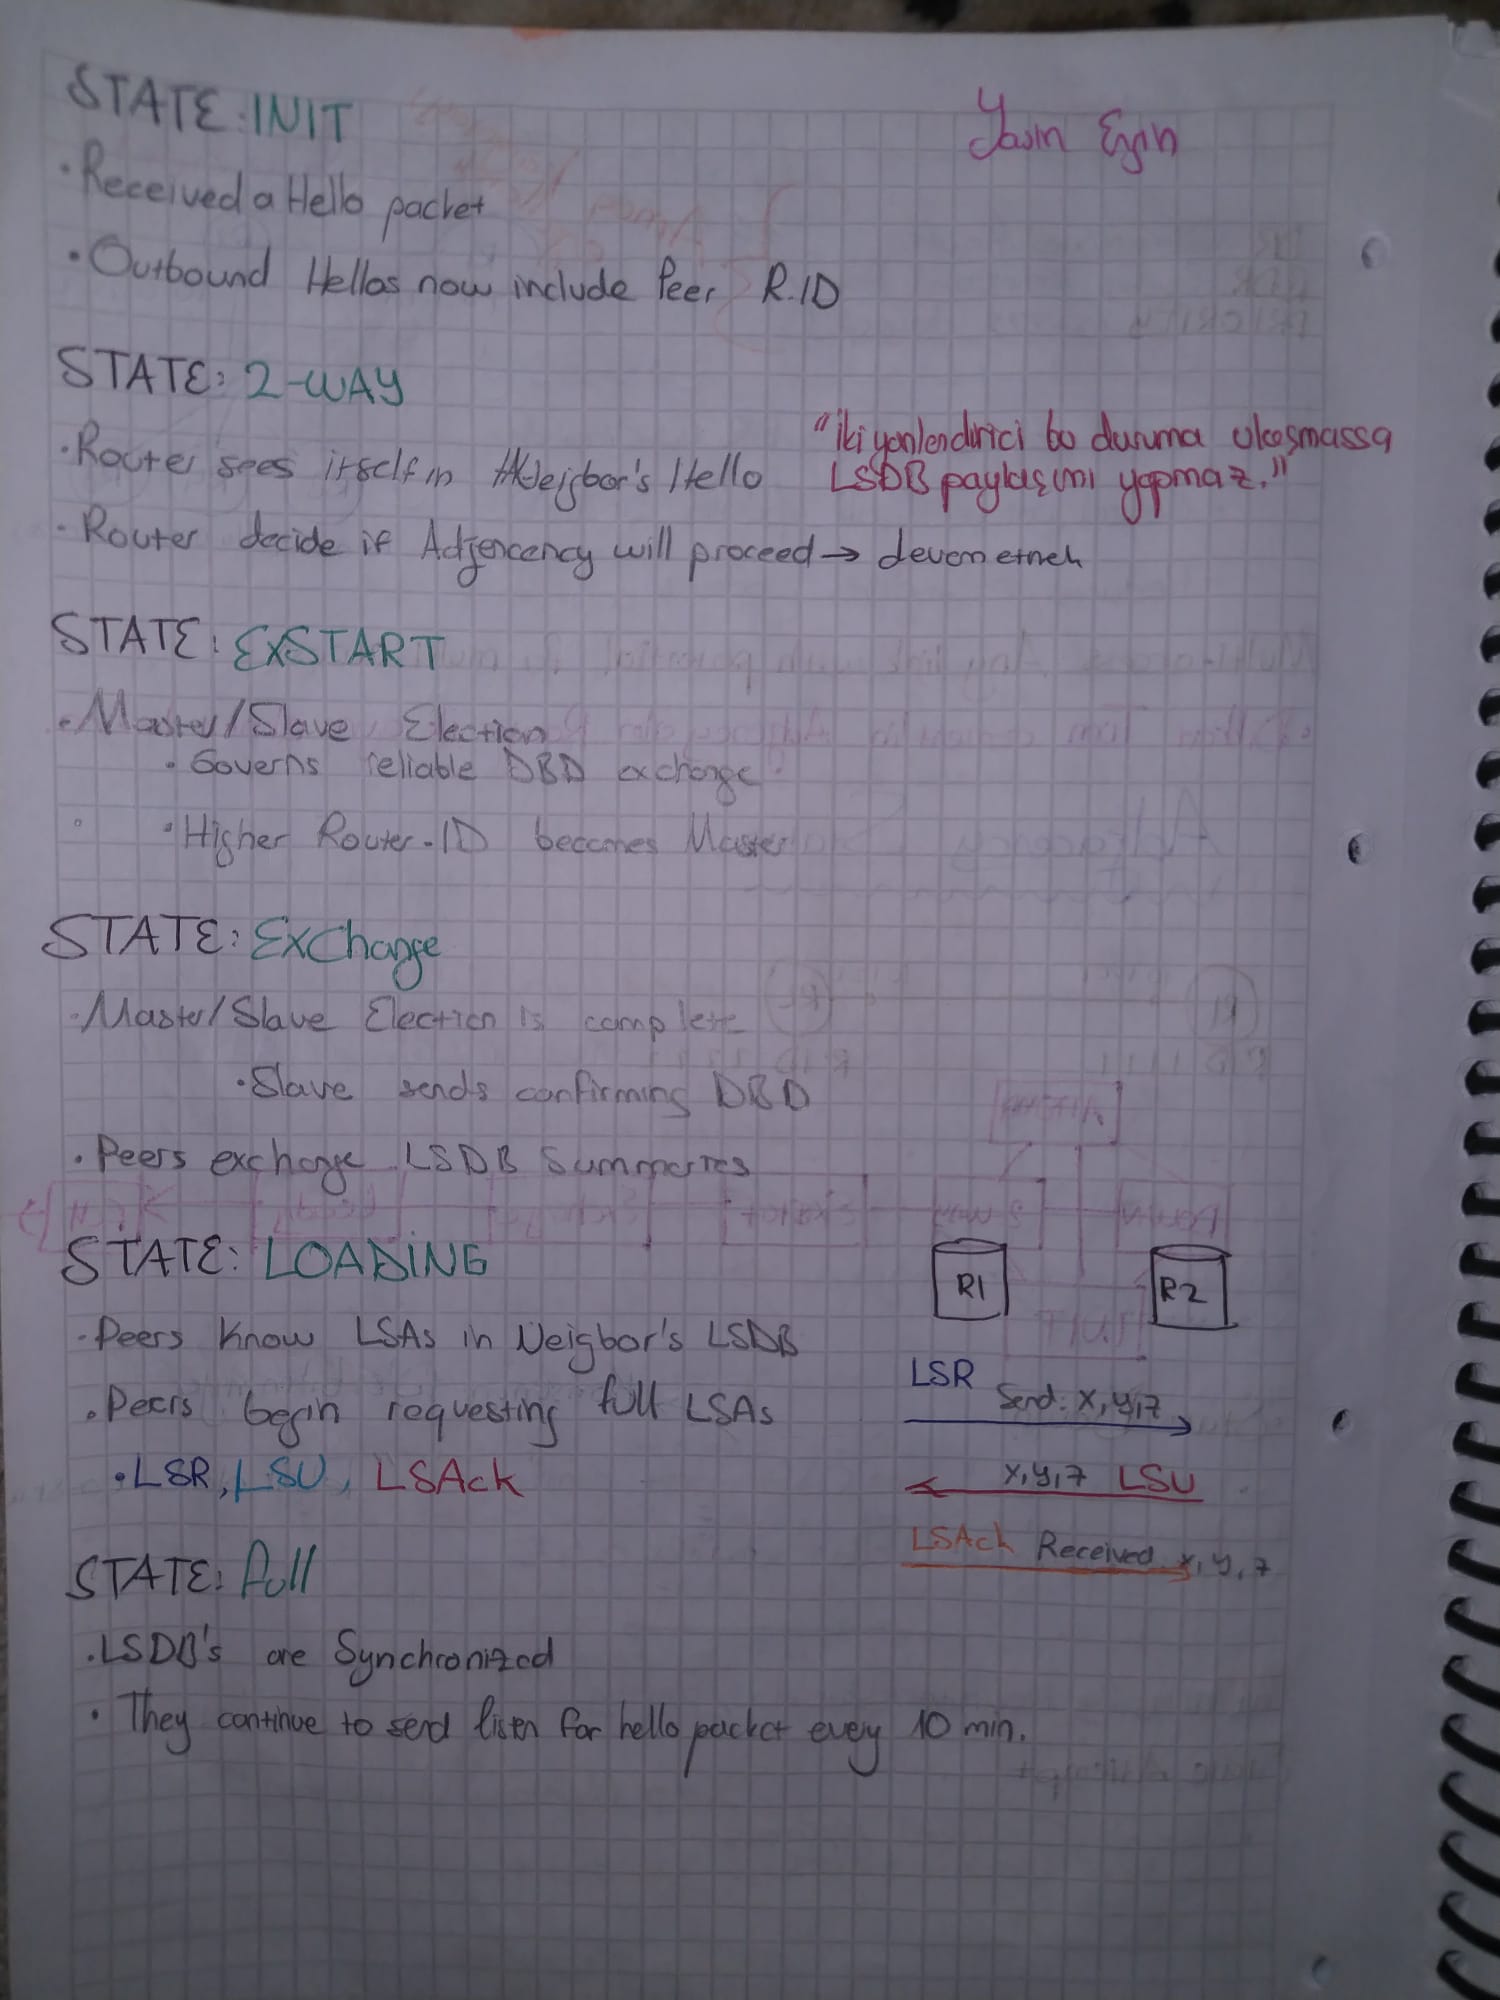 STATE: INIT
Yasin Ergin
• Received a Hello packet
• Outbound Hellos now include Peer R.ID
STATE: 2-WAY
• Router sees itself in Neigbor's Hello
"İki yönlendirici bu duruma ulaşmassa
LSDB paylaşımı yapmaz."
• Router decide if Adjencency will proceed → devam etmek
STATE: EXSTART
• Master/Slave Election
• Governs reliable DBD exchange
• Higher Router-ID becomes Master
STATE: ExChange
• Master/Slave Election is complete
• Slave sends confirming DBD
• Peers exchange LSDB Summaries
STATE: LOADING
R1 R2
• Peers Know LSAs in Neigbor's LSDB
• Peers begin requesting full LSAs
LSR Send: x,y,z
• LSR, LSU, LSAck
x,y,z LSU
LSAck Received x,y,z
STATE: full
• LSDB's are Synchronized
• They continue to send listen for hello packet every 10 min.